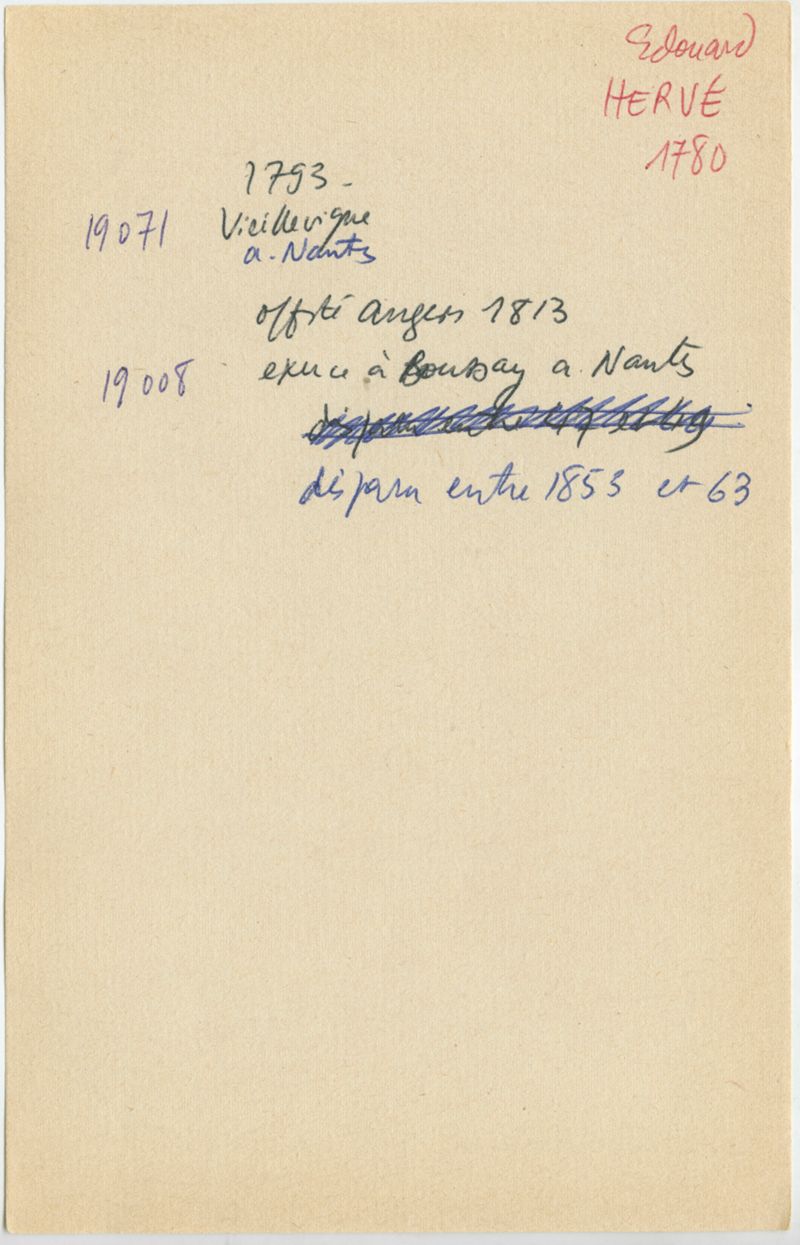 Edouard
HERVÉ
1780
1793 -
19071 Vieillevigne
a. Nantes
offté Angers 1813
19008 exerce à Boussay a. Nantes
disparu entre 1853 et 63